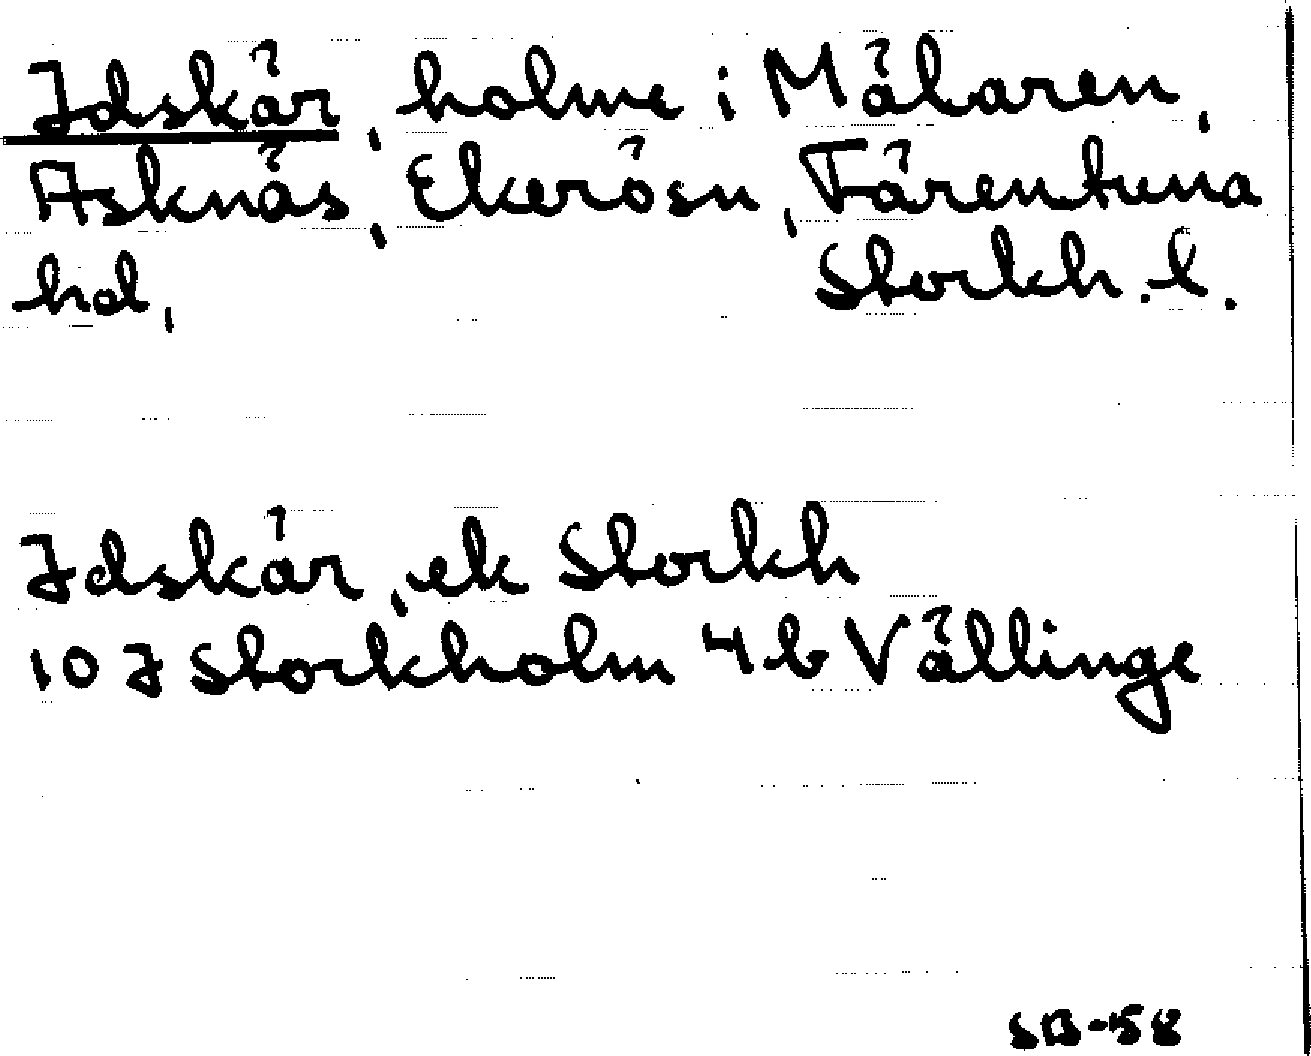 Idskär, holme i Mälaren,
Asknäs, Ekerösn, Färentuna
hd, Stockh. l.
Idskär, ek Stockh
10 I Stockholm 4 b Vällinge
SB-58